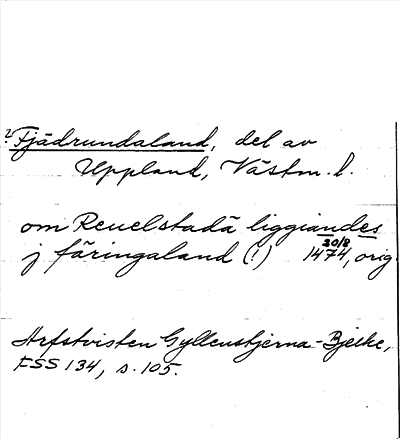 ? Fjädrundaland, del av
Uppland, Västm. l.
om Reuelstadä liggiandes
20/8
j färingaland (!) 1474, orig.
Arfstvisten Gyllenstjerna-Bjelke,
FSS 134, s. 105.